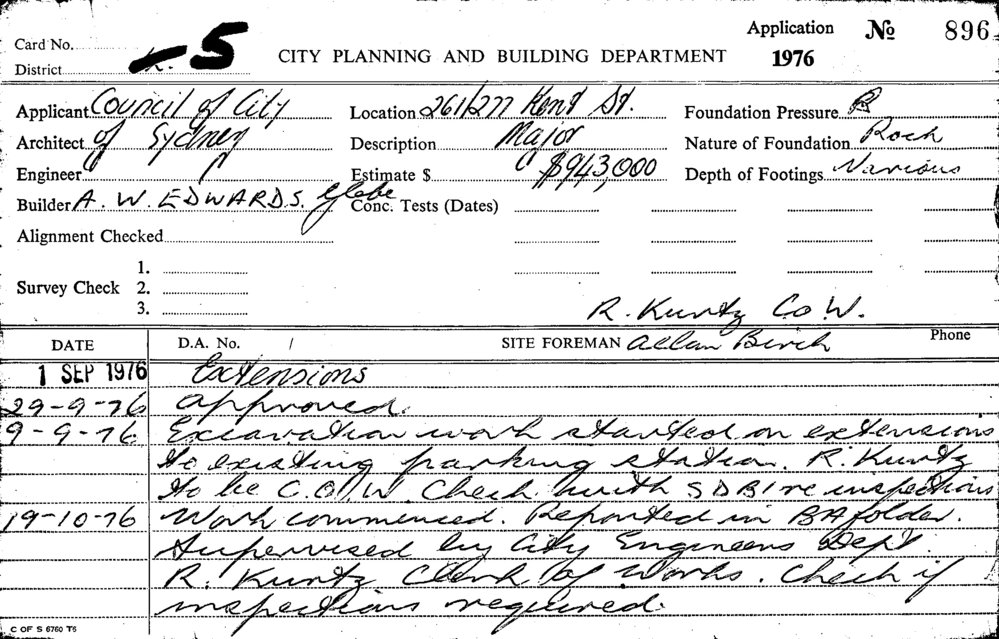 Application № 896
Card No. 5
CITY PLANNING AND BUILDING DEPARTMENT 1976
District
Applicant Council of City Location 261/277 Kent St. Foundation Pressure B
Architect of Sydney Description Major Nature of Foundation Rock
Engineer Estimate $ $943,000 Depth of Footings Various
Builder A. W. EDWARDS. Glebe Conc. Tests (Dates)
Alignment Checked
1.
Survey Check 2.
3.
R. Kuntz Co W.
DATE D.A. No. / SITE FOREMAN Allan Birch Phone
1 SEP 1976 Extensions
29-9-76 approved.
9-9-76 Excavation work started on extensions
to existing parking station. R. Kuntz
to be C.O.W. Check with SDBI re inspections
19-10-76 Work commenced. Reported in BA folder.
Supervised by City Engineers Dept.
R. Kuntz Clerk of Works. Check if
inspections required.
C OF S 6760 T5